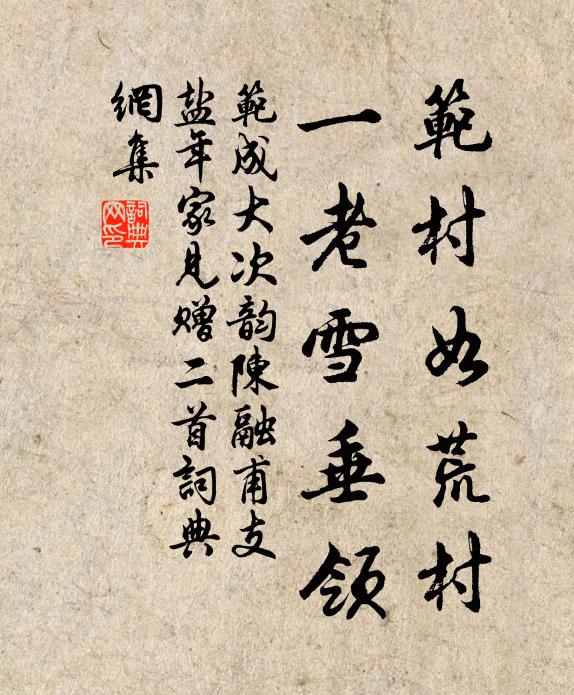 範村如荒村
一老雪垂領
範成大次韵陳融甫支
盐年家見贈二首詞典
網集
詞典
网印